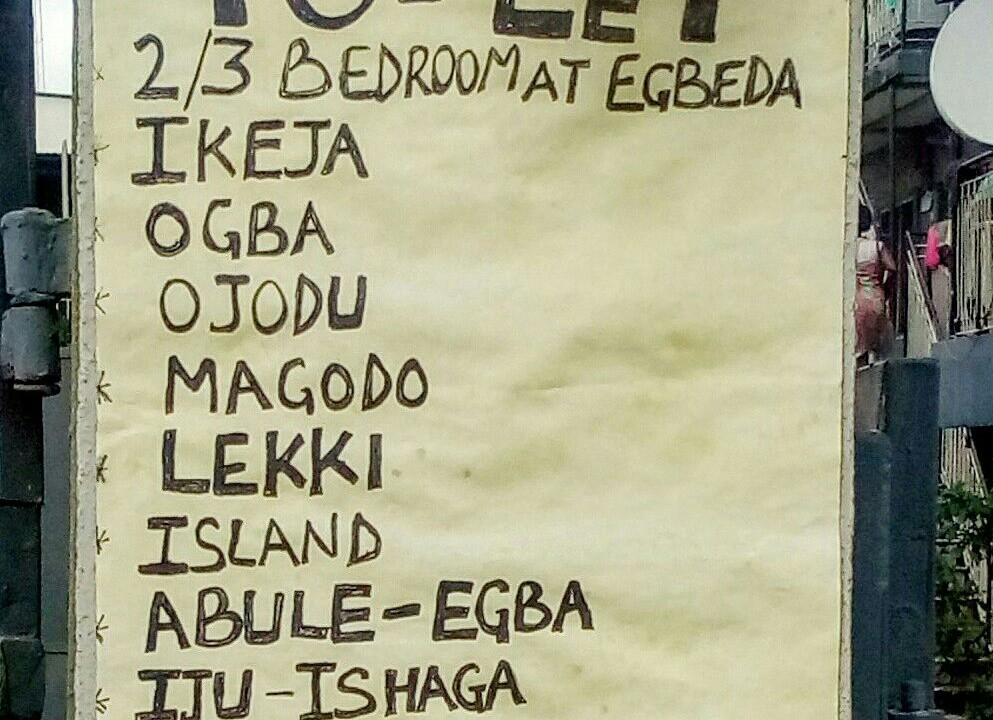 TO-LET
* 2/3 BEDROOM AT EGBEDA
* IKEJA
* OGBA
* OJODU
* MAGODO
* LEKKI
* ISLAND
* ABULE-EGBA
* IJU-ISHAGA